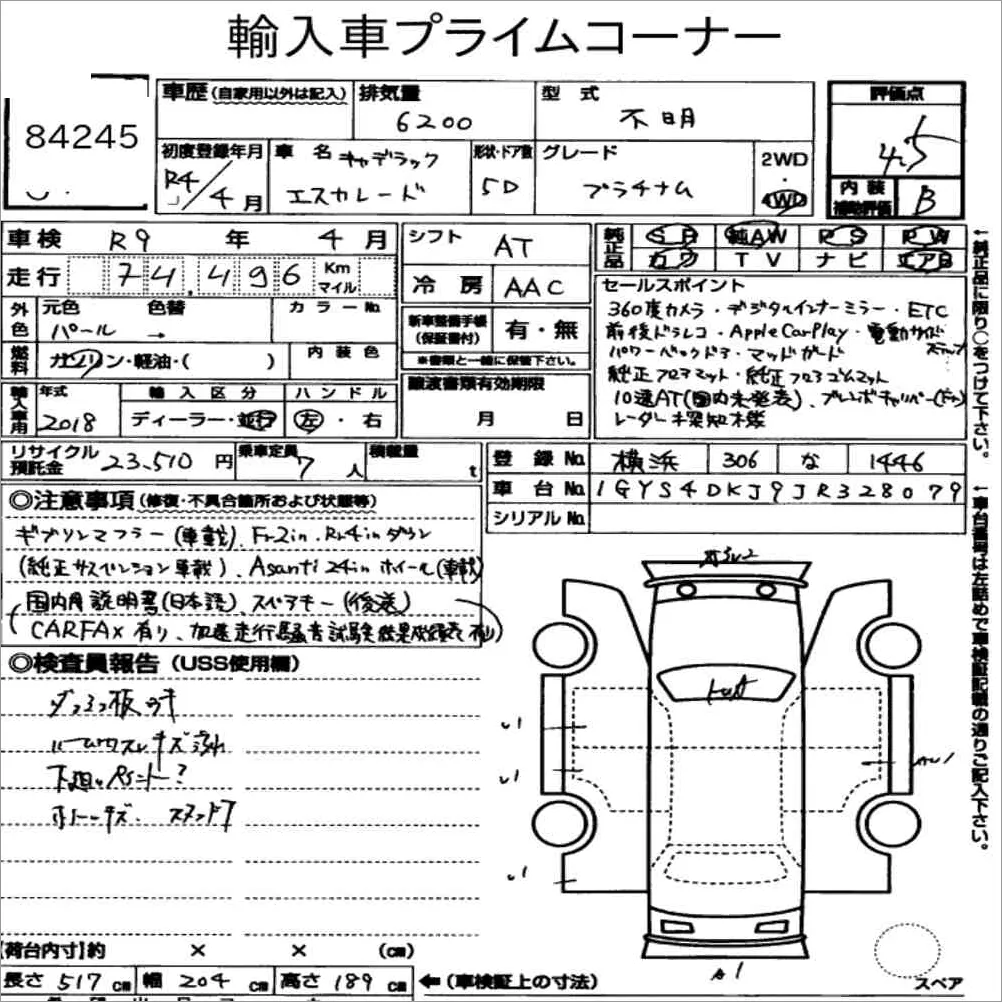 輸入車プライムコーナー
84245
車歴(自家用以外は記入)
排気量 6200
型式 不明
評価点 4.5
初度登録年月 R4/4月
車名 キャデラック エスカレード
形状・ドア数 5D
グレード プラチナム
2WD・4WD
内装補助評価 B
車検 R9年4月
走行 74,496 Km マイル
シフト AT
冷房 AAC
純正品 SR 純AW PS PW
カワ TV ナビ エアB
外色 元色 パール 色替 → カラーNo
燃料 ガソリン・軽油・( ) 内装色
新車整備手帳(保証書付) 有・無
※書類と一緒に保管下さい。
譲渡書類有効期限 月 日
セールスポイント
360度カメラ・デジタルインナーミラー・ETC
前後ドラレコ・Apple CarPlay・電動サイドステップ
パワーバックドア・マッドガード
純正フロアマット・純正フロアゴムマット
10速AT(国内未発表)、ブレンボキャリパー
レーダー探知機
輸入車用 年式 2018
輸入区分 ディーラー・並行
ハンドル 左・右
リサイクル預託金 23,510円
乗車定員 7人
積載量 t
登録No 横浜 306 な 1446
車台No 1GYS4DKJ9JR328079
シリアルNo
◎注意事項(修復・不具合箇所および状態等)
ギブソンマフラー(車載)、Fr2in、Rr4inダウン
(純正サスペンション車載)、Asanti 24inホイール(車載)
国内用説明書(日本語)、スペアキー(後送)
CARFAX有り、加速走行騒音試験結果成績表有り
◎検査員報告(USS使用欄)
ルームワスレキズ汚れ
下廻りペイント?
A1
スペア
【荷台内寸】約 × × (cm)
長さ 517cm 幅 204cm 高さ 189cm ←(車検証上の寸法)
←純正品に限り○をつけて下さい。
←車台番号は左詰めで車検証記載の通りご記入下さい。